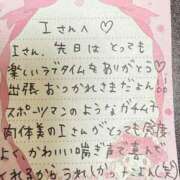 Iさんへ♡
Iさん、先日はとっても
楽しいラブタイムをありがとう♡
出張おつかれさまだよん
スポーツマンのようなガチムチ
肉体美のIさんがとっても感度
よく、かわいい喘ぎ声で喜んで
くれるからうれしかったよん(笑)